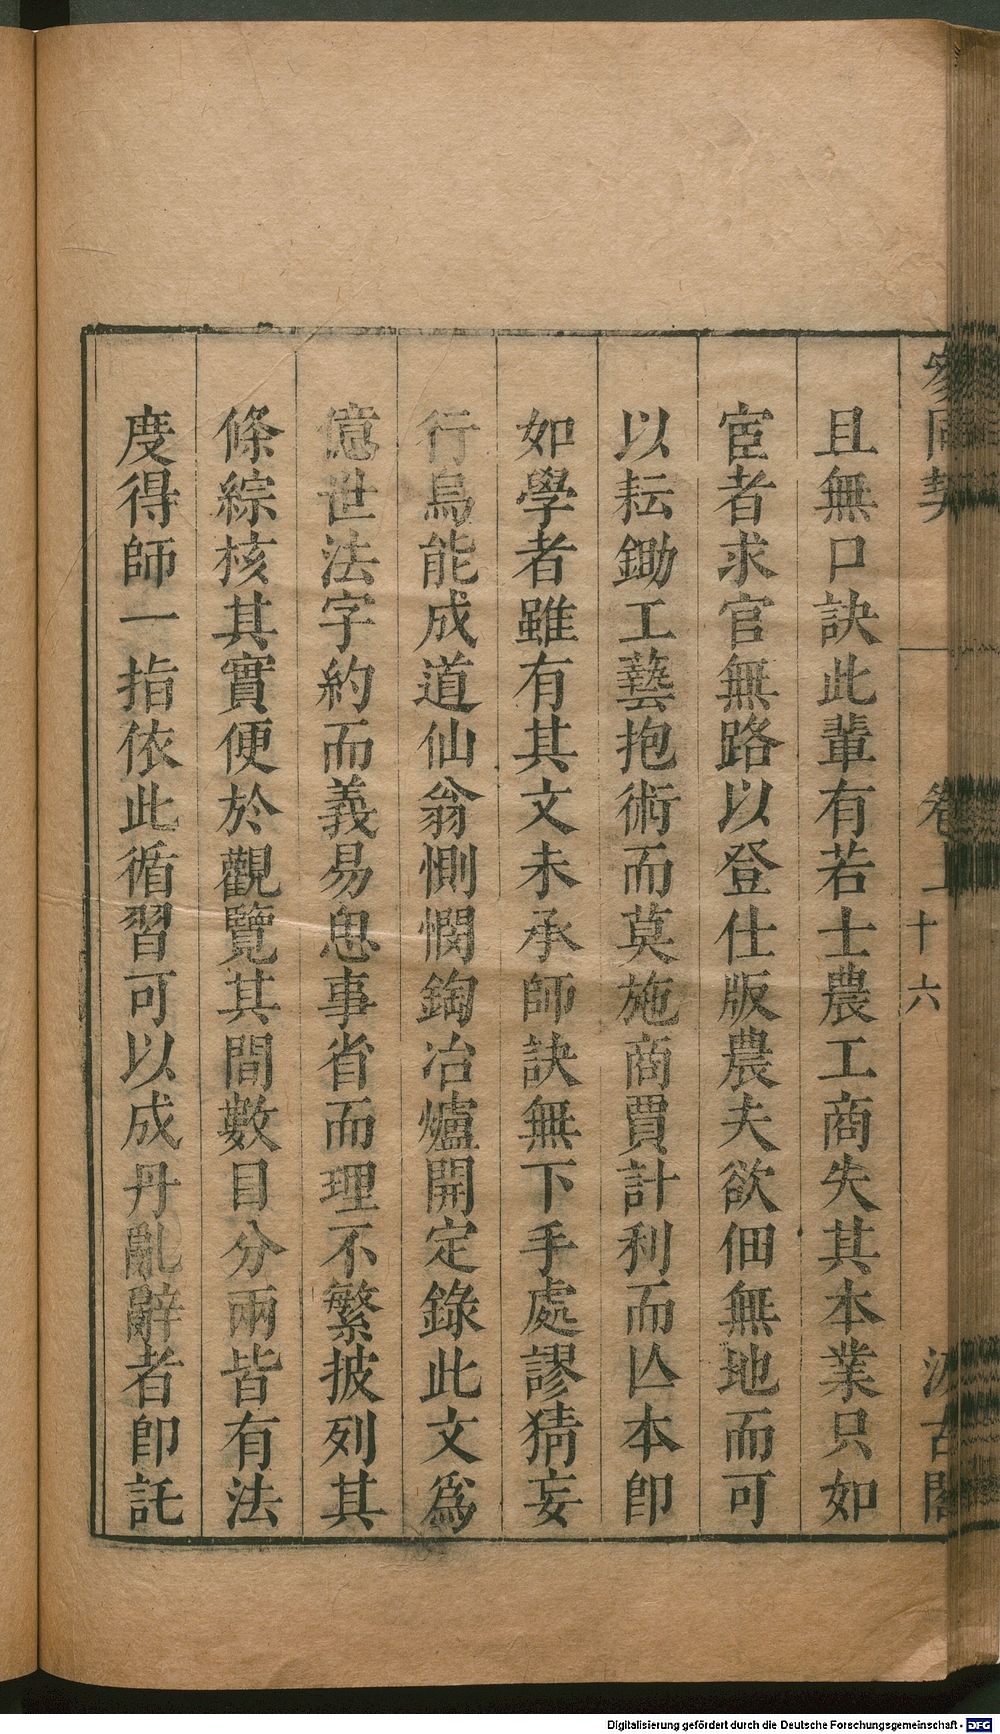 參同契 卷上 十六 汲古閣
且無口訣此輩有若士農工商失其本業只如
宦者求官無路以登仕版農夫欲佃無地而可
以耘鋤工藝抱術而莫施商賈計利而亾本卽
如學者雖有其文未承師訣無下手處謬猜妄
行烏能成道仙翁惻憫鋾冶爐開定錄此文爲
億世法字約而義易思事省而理不繁披列其
條綜核其實便於觀覽其間數目分兩皆有法
度得師一指依此循習可以成丹亂辭者卽託
Digitalisierung gefördert durch die Deutsche Forschungsgemeinschaft - DFG